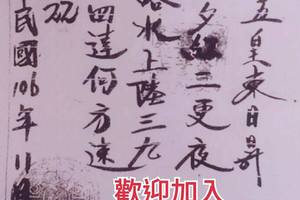 五皇東日昇
夕紅二更夜
水上陸三九
四達何方速
22
民國106年11
歡迎加入